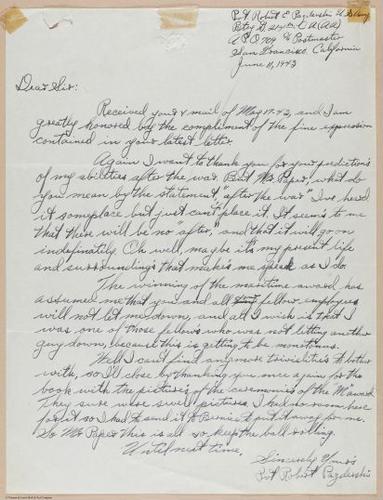 Pvt. Robert E Pazderski U.S. Army
Batry D. 214th C A (AA)
A P O 709 % Postmaster
San Francisco. California
June 11, 1943
Dear Sir:
Received your v mail of May 17-43, and I am
greatly honored by the compliment of the fine expression
contained in your latest letter.
Again I want to thank you for your predictions
of my abilities after the war. But Mr. Paper, what do
you mean by the statement, "after the war" I've heard
it someplace but just can't place it. It seem's to me
that there will be no "after," and that it will go on
indefinately. Oh well maybe it's my present life
and surroundings that make's me speak as I do.
The winning of the maritime award has
assumed me that you and all fellow employees
will not let me down, and all I wish is that I
was one of those fellows who was not letting another
guy down, because this is getting to be monotonus.
Well I can't find anymore trivialities to bother
with, so I'll close by thanking you once again for the
book with the pictures of the ceremonies of the M award.
They sure were swell pictures, I had no room here
for it so I had to send it to Bernice to put it away for me.
So Mr Paper this is all so keep the ball rolling.
Until next time.
Sincerely Your's
Pvt Robert Pazderski